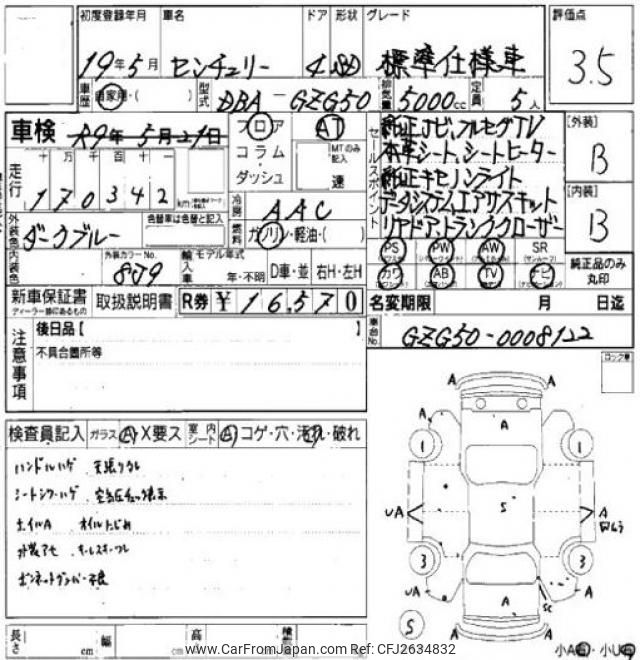 初度登録年月 車名 ドア 形状 グレード 評価点
19年5月 センチュリー 4 SD 標準仕様車 3.5
車歴 自家用・( ) 型式 DBA-GZG50 排気量 5000cc 定員 5人
車検 R9年5月21日 フロア AT セールスポイント [外装]
コラム MTのみ記入 B
ダッシュ 速
純正ナビ、フルセグTV
本革シート、シートヒーター
純正キセノンライト
リアドア、トランククローザー
走行 十 万 千 百 十 一
170342
[内装]
B
冷房 AAC
外装色 ダークブルー 色替車は色替と記入 燃料 ガソリン・軽油・( )
PS PW AW SR
カワ AB TV ナビ
純正品のみ丸印
内装色 外装カラーNo. 8J9 輸入車 モデル年式 年・不明 D車・並 右H・左H
新車保証書 取扱説明書 R券 ¥16,570 名変期限 月 日迄
ディーラー印にあるもの
注意事項 後日品【 】
不具合箇所等
車台No. GZG50-0008122
ロック車
検査員記入 ガラス A・X要ス 室内シート A コゲ・穴・汚れ・破れ
ハンドルハゲ 天張りタレ
シートシワ・ハゲ 空気圧チェック表示
ホイルA オイルにじみ
外装アセ
ボンネットダンパー不良
A A
A A A
1 1
UA S A
3 3
UA A SC A
S A A
長さ cm 幅 cm 高
小A 小U
www.CarFromJapan.com Ref: CFJ2634832